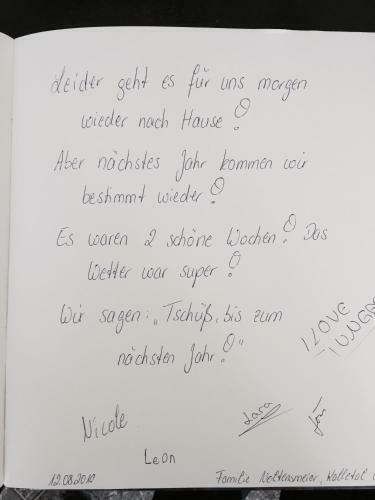 Leider geht es für uns morgen
wieder nach Hause!
Aber nächstes Jahr kommen wir
bestimmt wieder!
Es waren 2 schöne Wochen! Das
Wetter war super!
Wir sagen: „Tschüß, bis zum
nächsten Jahr!"
I LOVE
Nicole
Lara
Leon
Familie